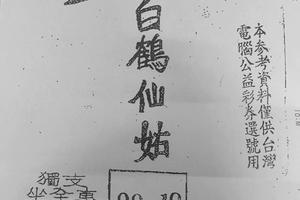 本參考資料僅供台灣
電腦公益彩券選號用
白鶴仙姑
獨支